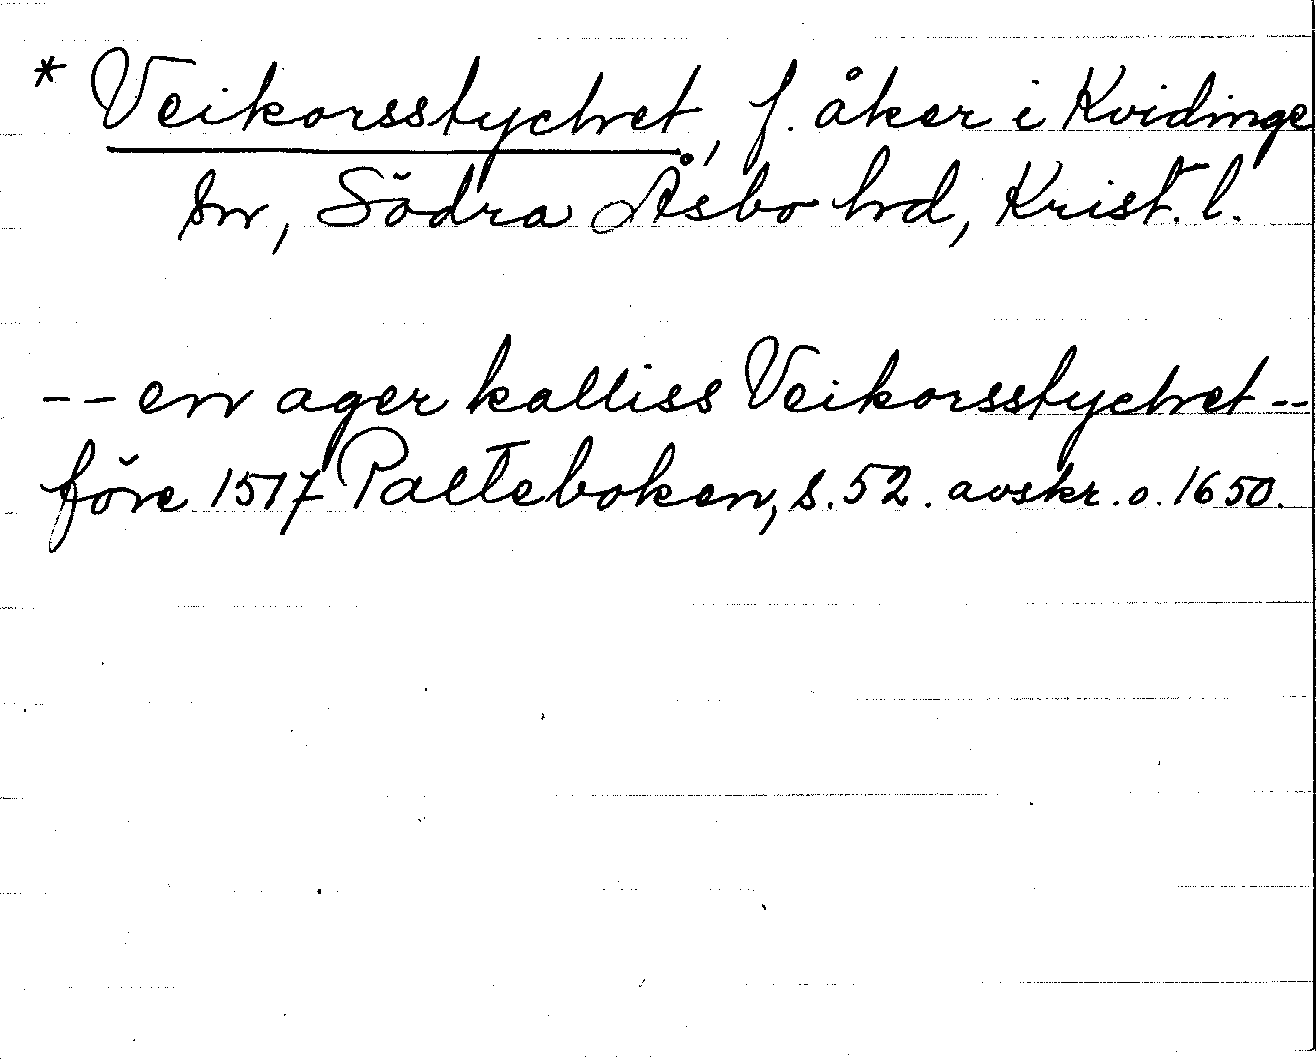 * Veikorsstychet, f. åker i Kvidinge
sn, Södra Åsbo hd, Krist. l.
-- en ager kalliss Veikorsstychet --
före 1517 Palteboken, s. 52. avskr. o. 1650.